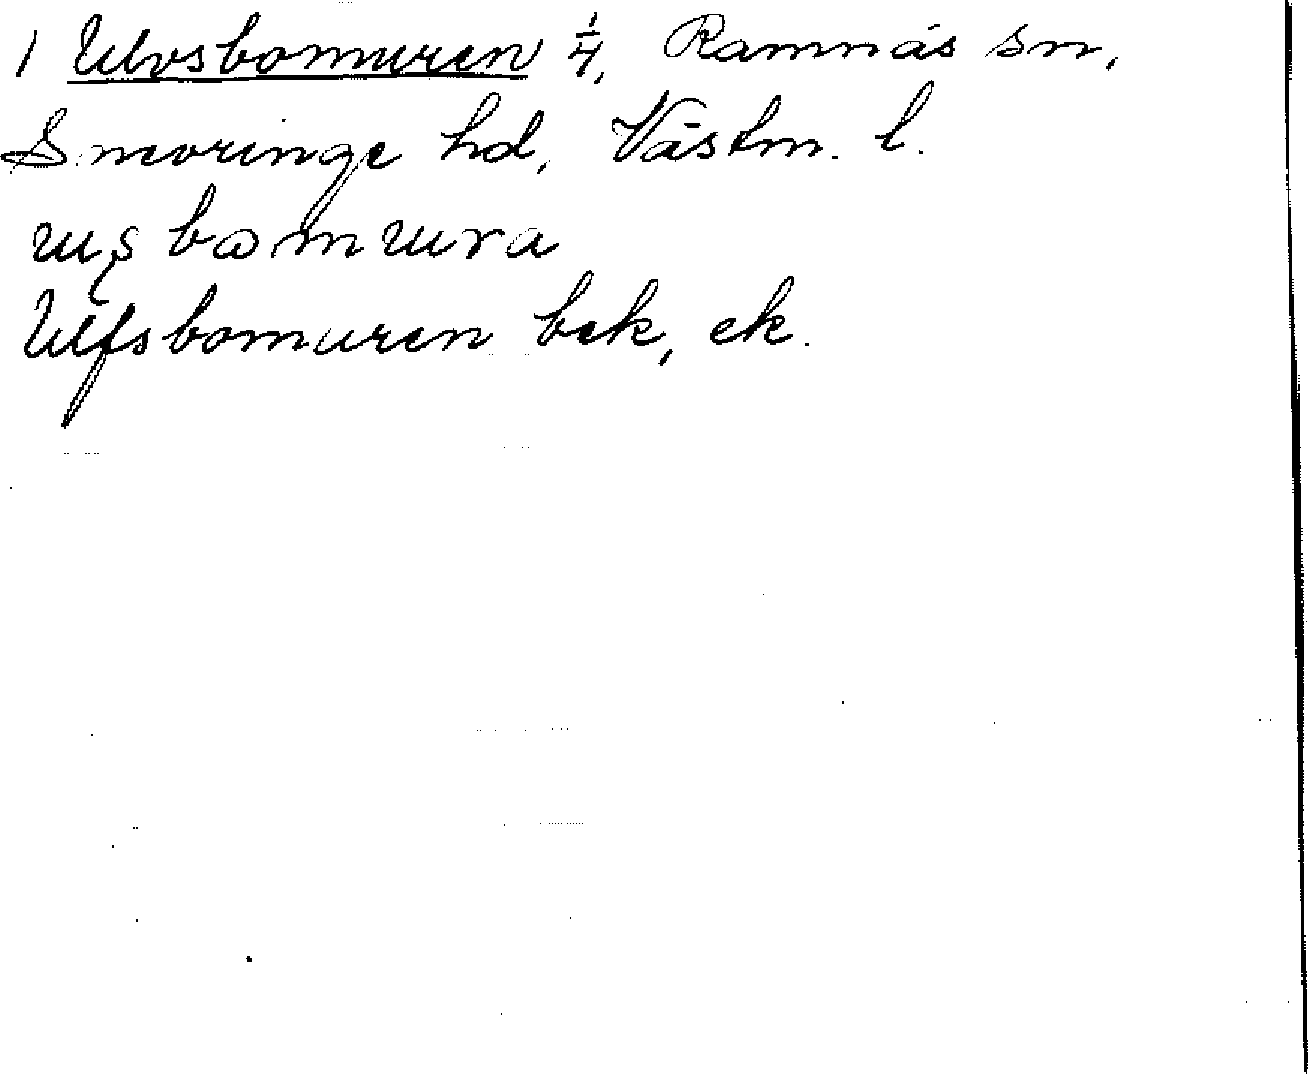 1 Ulvsbomuren 1/4, Ramnäs sn,
Snevringe hd, Västm. l.
bomura
Ulfsbomuren bek, ek.